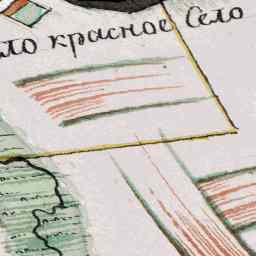 ло красное Село